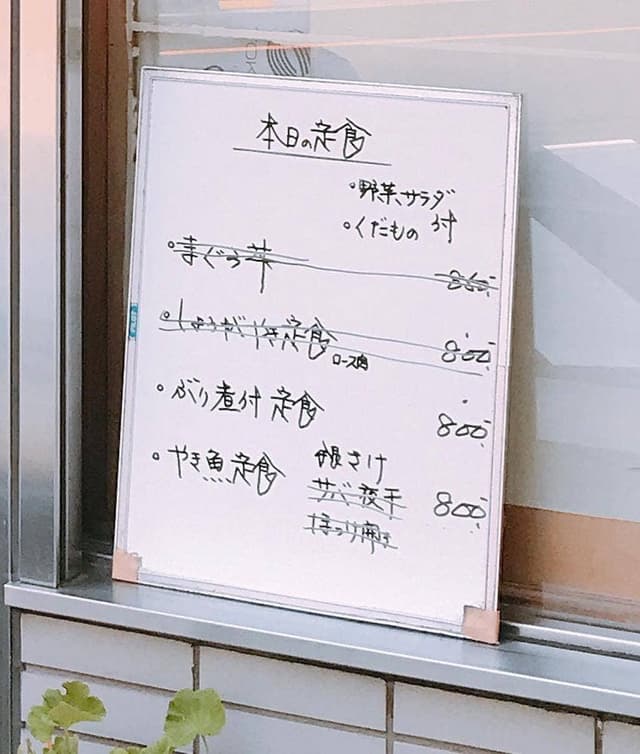 本日の定食
・野菜、サラダ
・くだもの 付
・まぐろ丼 860
・しょうがやき定食 ロース肉 800
・ぶり煮付定食 800
・やき魚定食 銀さけ 800
サバ一夜干
ほっけ開き